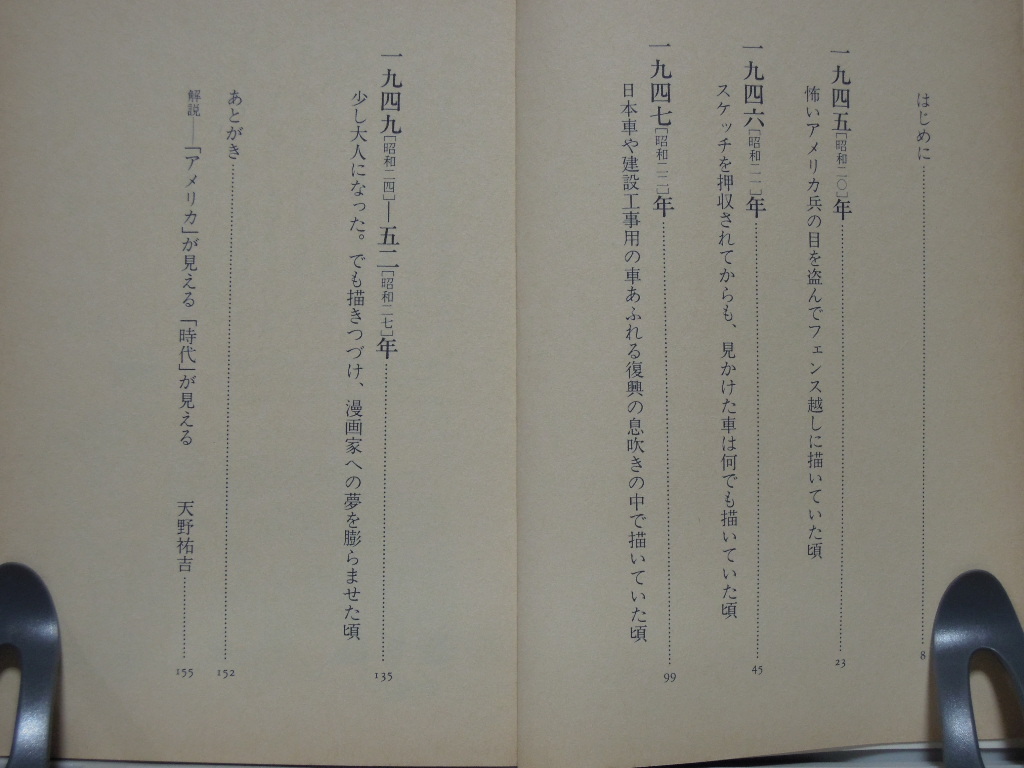 はじめに……8
一九四五[昭和二〇]年……23
怖いアメリカ兵の目を盗んでフェンス越しに描いていた頃
一九四六[昭和二一]年……45
スケッチを押収されてからも、見かけた車は何でも描いていた頃
一九四七[昭和二二]年……99
日本車や建設工事用の車あふれる復興の息吹きの中で描いていた頃
一九四九[昭和二四]―五二[昭和二七]年……135
少し大人になった。でも描きつづけ、漫画家への夢を膨らませた頃
あとがき……152
解説――「アメリカ」が見える「時代」が見える　天野祐吉……155